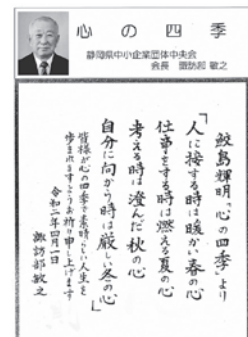 心の四季
静岡県中小企業団体中央会
会長 諏訪部 敏之
鮫島輝明「心の四季」より
「人に接する時は暖かい春の心
仕事をする時は燃える夏の心
考える時は澄んだ秋の心
自分に向かう時は厳しい冬の心」
皆様が心の四季で素晴らしい人生を
歩まれますようお祈り申し上げます
令和二年四月一日
諏訪部敏之